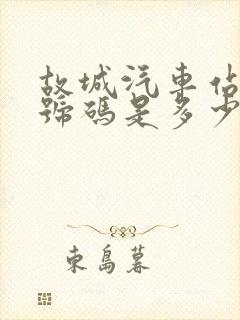 故城汽車佔
號碼是多少
東島暮